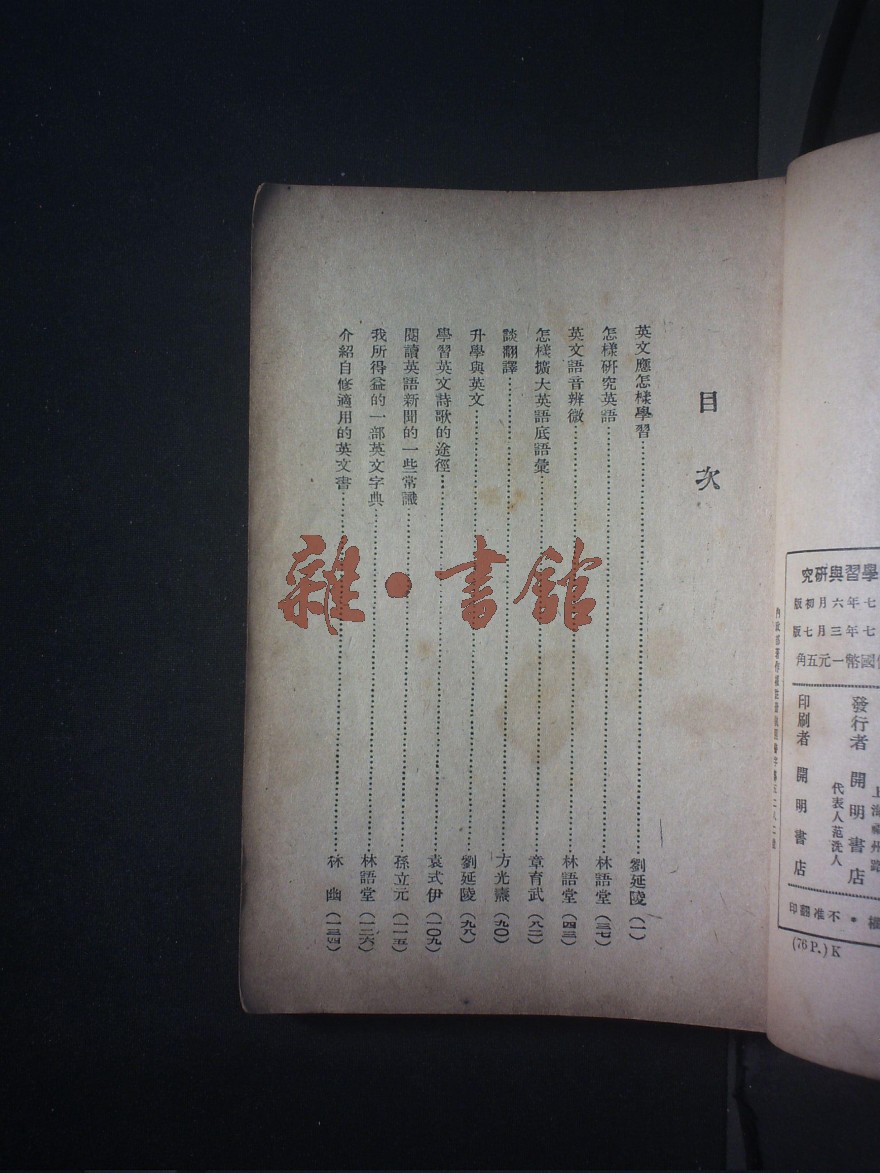 目次
英文應怎樣學習……劉延陵(一)
怎樣研究英語……林語堂(三七)
英文語音辨微……林語堂(四三)
怎樣擴大英語底語彙……章育武(八二)
談翻譯……方光燾(九〇)
升學與英文……劉延陵(九八)
學習英文詩歌的途徑……袁式伊(一〇九)
閱讀英語新聞的一些常識……孫立元(一一五)
我所得益的一部英文字典……林語堂(一二六)
介紹自修適用的英文書……林幽(一三四)
雜·書館
學習與研究
七年六月初版
七年三月七版
國幣一元五角
發行者 開明書店
代表人范洗人
印刷者 開明書店
不准翻印
(76 P.) K